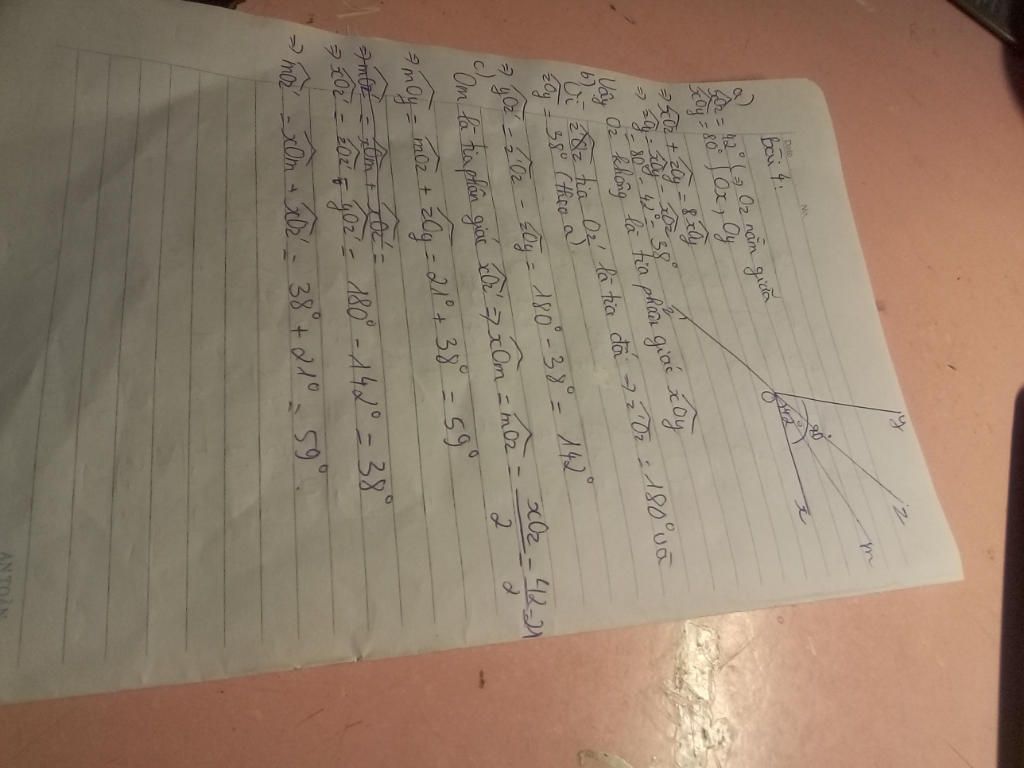 No.
Bài 4:
y
z
m
x
z'
38°
42°
a)
xOz = 42° | ⇒ Oz nằm giữa
xOy = 80° | Ox, Oy
⇒ xOz + zOy = xOy
⇒ zOy = xOy - xOz
= 80° - 42° = 38°
Vậy Oz không là tia phân giác xOy
b) Vì tia Oz' là tia đối ⇒ zOz' = 180° và
zOy = 38° (theo a)
⇒ yOz' = z'Oz - zOy = 180° - 38° = 142°
c) Om là tia phân giác xOz ⇒ xOm = mOz = xOz/2 = 42/2 = 21
⇒ mOy = mOz + zOy = 21° + 38° = 59°
⇒ mOz' = xOm + xOz' =
⇒ xOz' = zOz' - yOz' = 180° - 142° = 38°
⇒ mOz' = xOm + xOz' = 38° + 21° = 59°.